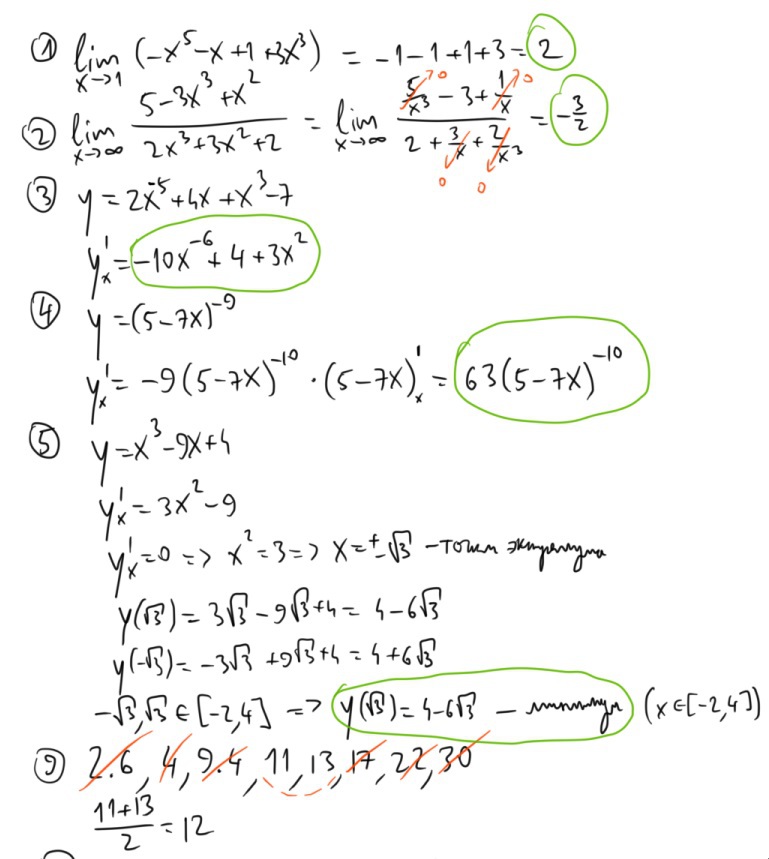 ① lim x→1 (-x⁵-x+1+3x³) = -1-1+1+3=2
② lim x→∞ (5-3x³+x²)/(2x³+3x²+2) = lim x→∞ (5/x³ - 3 + 1/x)/(2 + 3/x + 2/x³) = -3/2
0 0
0 0
③ y=2x⁻⁵+4x+x³-7
y'ₓ=-10x⁻⁶+4+3x²
④ y=(5-7x)⁻⁹
y'ₓ=-9(5-7x)⁻¹⁰·(5-7x)'ₓ=63(5-7x)⁻¹⁰
⑤ y=x³-9x+4
y'ₓ=3x²-9
y'ₓ=0 => x²=3=> x=±√3 - точки экстремума
y(√3)=3√3-9√3+4=4-6√3
y(-√3)=-3√3+9√3+4=4+6√3
-√3,√3∈[-2,4] => y(√3)=4-6√3 - минимум (x∈[-2,4])
⑨ 2.6, 4, 9.4, 11, 13, 17, 22, 30
(11+13)/2=12